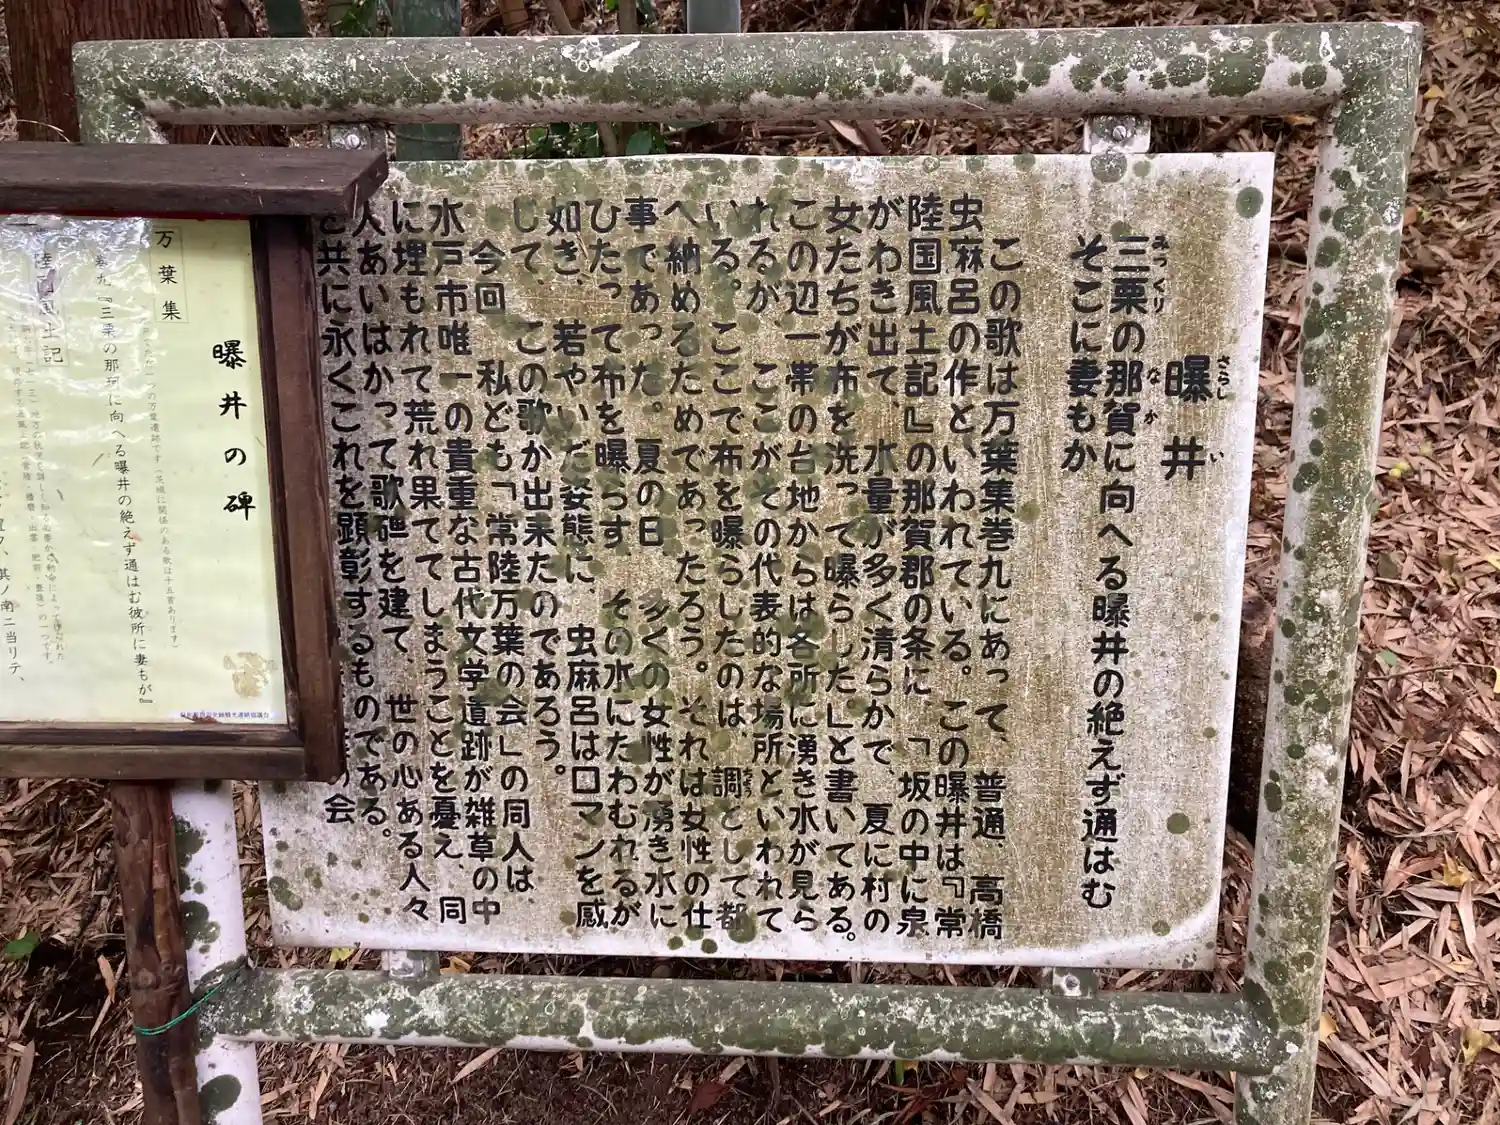 曝井
さらしい
三栗の那賀に向へる曝井の絶えず通はむ
みつくり
なか
そこに妻もか
この歌は万葉集巻九にあって、普通、高橋
虫麻呂の作といわれている。この曝井は『常
陸国風土記』の那賀郡の条に、「坂の中に泉
がわき出て、水量が多く清らかで、夏に村の
女たちが布を洗って曝らした。」と書いてある。
この辺一帯の台地からは各所に湧き水が見ら
れるが、ここがその代表的な場所といわれて
いる。ここで布を曝らしたのは、調として都
へ納めるためであったろう。それは女性の仕
事であった。夏の日 多くの女性が湧き水に
ひたって布を曝らす その水にたわむれるが
如き、若やいだ姿態に、虫麻呂はロマンを感
じて、この歌か出来たのであろう。
今回 私ども「常陸万葉の会」の同人は、
水戸市唯一の貴重な古代文学遺跡が雑草の中
に埋もれて荒れ果ててしまうことを憂え、同
人あいはかって歌碑を建て、世の心ある人々
と共に永くこれを顕彰するものである。
の会
曝井の碑
万葉集
巻九『三栗の那珂に向へる曝井の絶えず通はむ彼所に妻もが』
風土記
其ノ南ニ当リテ、